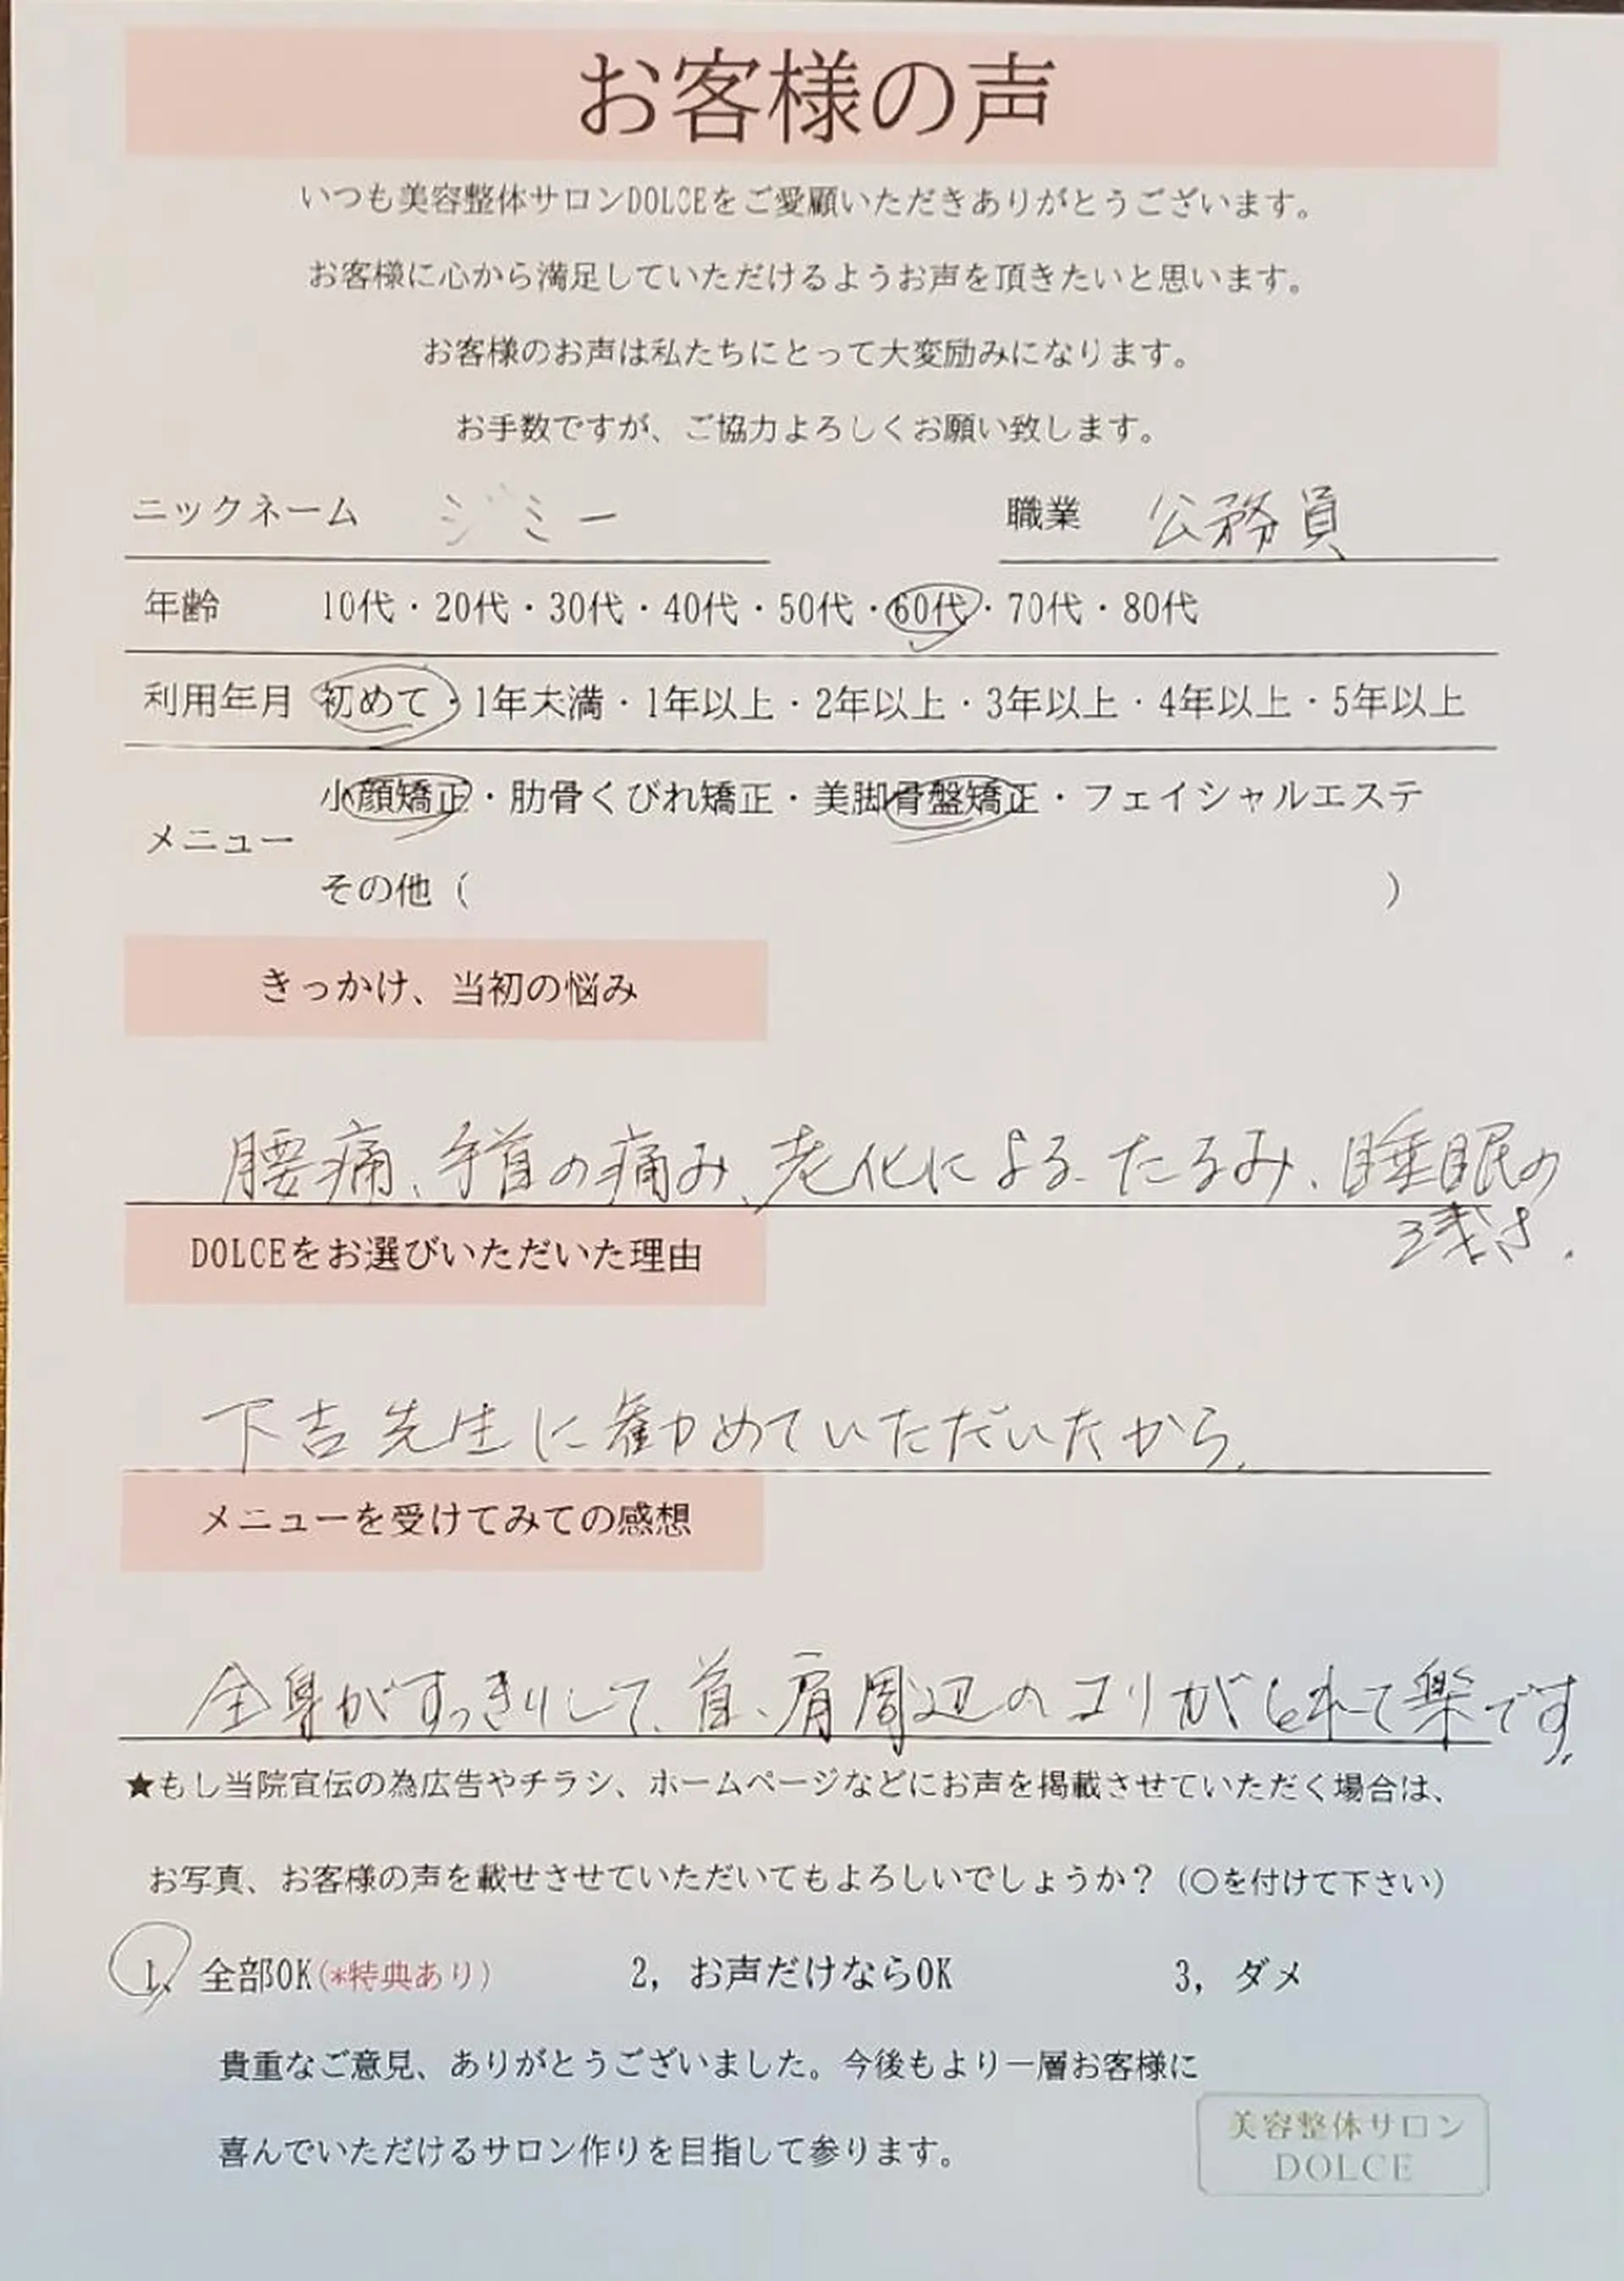 お客様の声
いつも美容整体サロンDOLCEをご愛顧いただきありがとうございます。
お客様に心から満足していただけるようお声を頂きたいと思います。
お客様のお声は私たちにとって大変励みになります。
お手数ですが、ご協力よろしくお願い致します。
ニックネーム ジミー 職業 公務員
年齢 10代・20代・30代・40代・50代・60代・70代・80代
利用年月 初めて・1年未満・1年以上・2年以上・3年以上・4年以上・5年以上
小顔矯正・肋骨くびれ矯正・美脚骨盤矯正・フェイシャルエステ
メニュー
その他（ ）
きっかけ、当初の悩み
腰痛、手首の痛み、老化によるたるみ、睡眠の
浅さ.
DOLCEをお選びいただいた理由
下吉先生に勧めていただいたから.
メニューを受けてみての感想
全身がすっきりして、首、肩周辺のコリがとれて楽です.
★もし当院宣伝の為広告やチラシ、ホームページなどにお声を掲載させていただく場合は、
お写真、お客様の声を載せさせていただいてもよろしいでしょうか？（〇を付けて下さい）
1、全部OK(*特典あり) 2，お声だけならOK 3，ダメ
貴重なご意見、ありがとうございました。今後もより一層お客様に
喜んでいただけるサロン作りを目指して参ります。
美容整体サロン
DOLCE